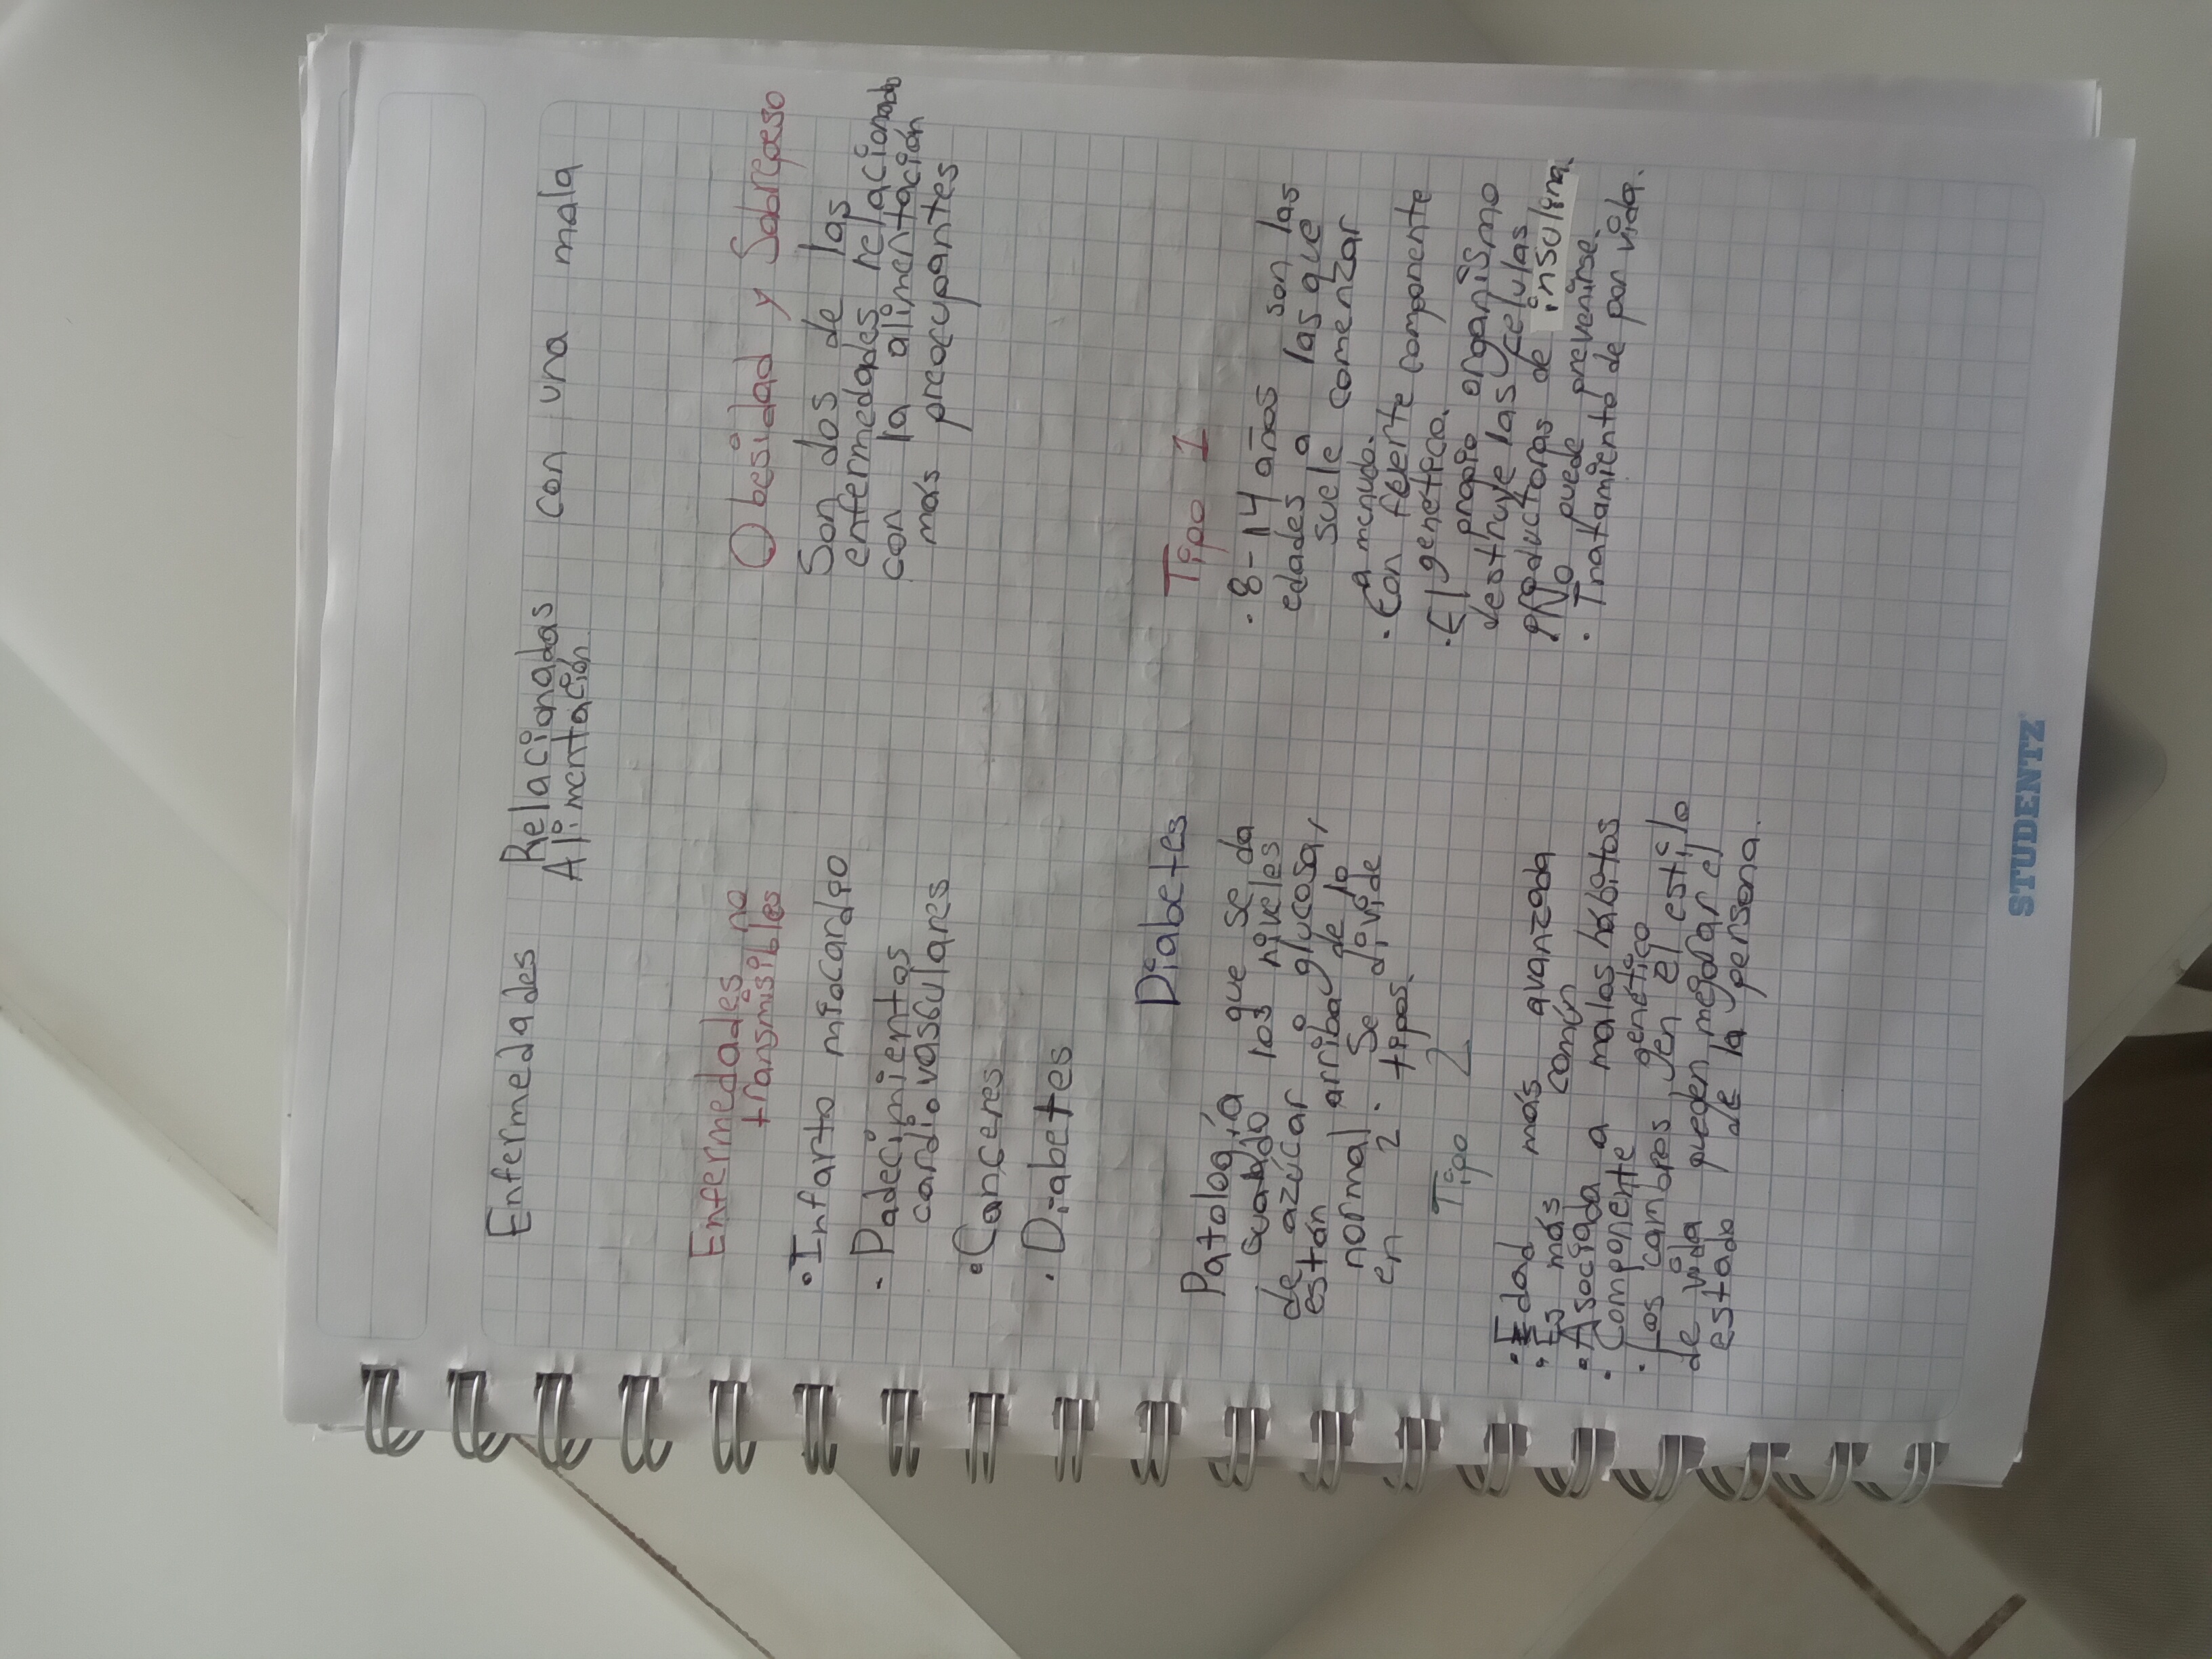 Enfermedades Relacionadas con una mala
Alimentación.
Enfermedades no
transmisibles
• Infarto miocardio
• Padecimientos
cardiovasculares
• Canceres
• Diabetes
Obesidad y Sobrepeso
Son dos de las
enfermedades relacionado
con la alimentación
más preocupantes
Diabetes
Patología que se da
cuando los niveles
de azúcar o glucosa,
están arriba de lo
normal. Se divide
en 2 tipos.
Tipo 1
• 8-14 años son las
edades a las que
suele comenzar
a menudo.
• Con fuerte componente
genetico.
• El propio organismo
destruye las celulas
productoras de insulina.
No puede prevenirse.
• Tratamiento de por vida.
Tipo 2
• Edad más avanzada
• Es más común
• Asociada a malos hábitos
• Componente genético
• Los cambios en el estilo
de vida pueden mejorar el
estado de la persona.
STUDENTZ